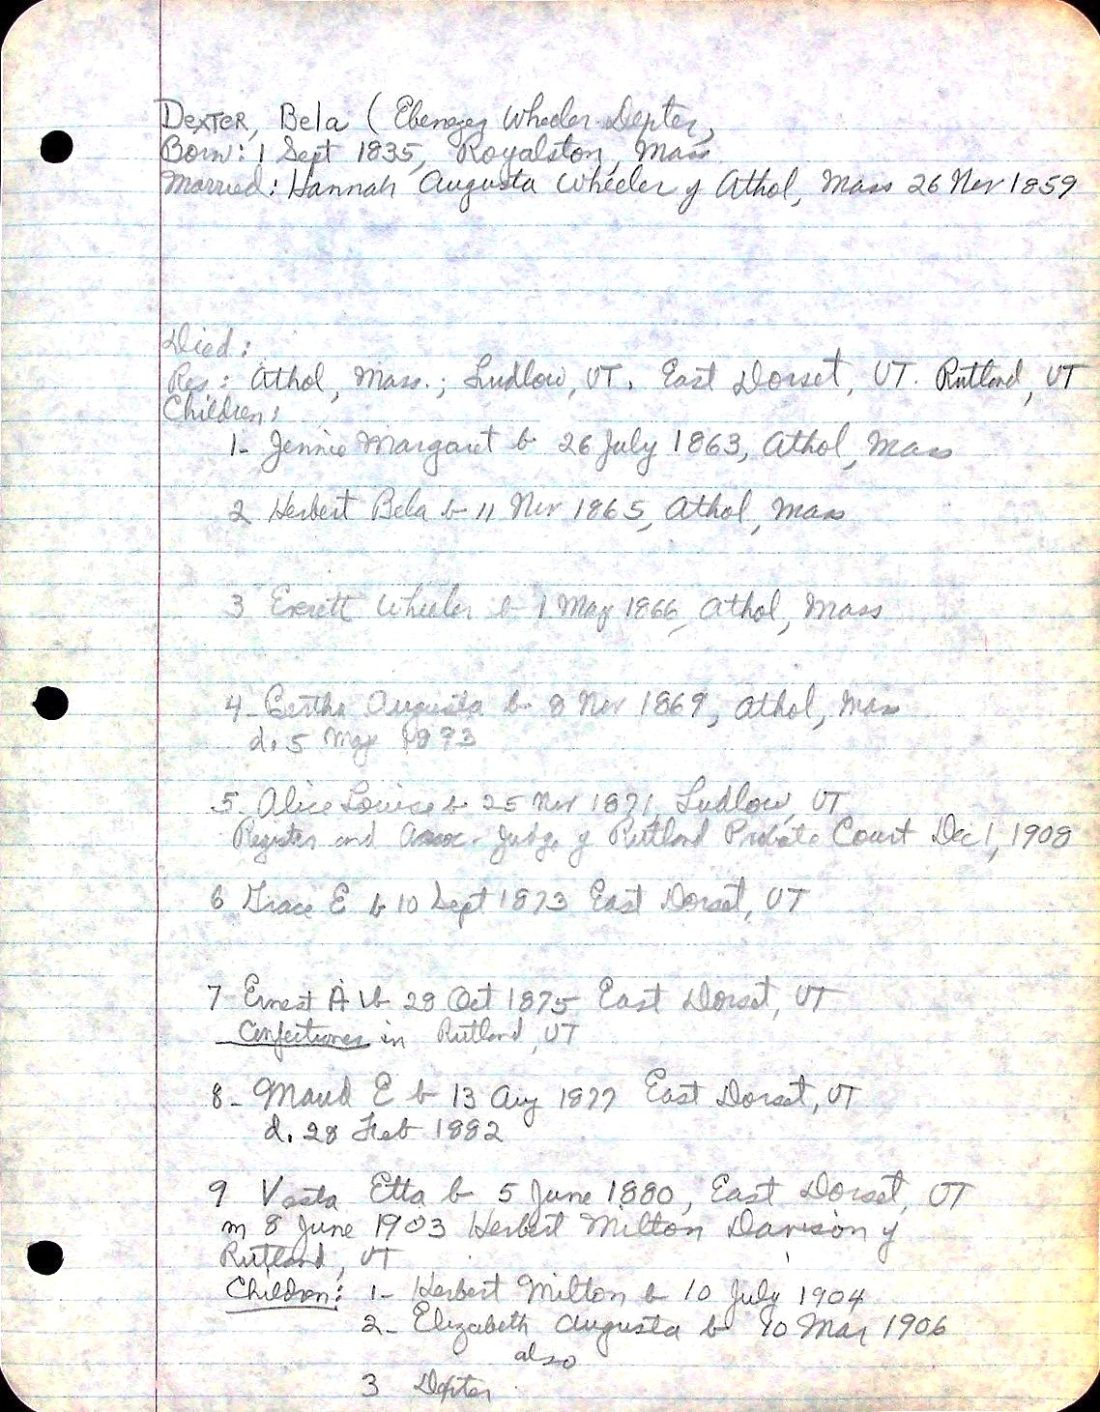 Dexter, Bela (Ebenezer Wheeler Dexter,
Born: 1 Sept 1835, Royalston, Mass
Married: Hannah Augusta Wheeler of Athol, Mass 26 Nov 1859
Died:
Res: Athol, Mass.; Ludlow, VT. East Dorset, VT. Rutland, VT
Children:
1- Jennie Margaret b 26 July 1863, Athol, Mass
2 Herbert Bela b 11 Nov 1865, Athol, Mass
3 Everett Wheeler b 1 May 1866, Athol, Mass
4- Bertha Augusta b 8 Nov 1869, Athol, Mass
d. 5 May 1873
5- Alice Louise b 25 Nov 1871, Ludlow, VT
Register and Assoc. Judge of Rutland Probate Court Dec 1, 1908
6 Grace E b 10 Sept 1873 East Dorset, VT
7- Ernest A b 28 Oct 1875 East Dorset, VT
Confectioner in Rutland, VT
8- Maud E b 13 Aug 1877 East Dorset, VT
d. 28 Feb 1882
9 Vesta Etta b 5 June 1880, East Dorset, VT
m 8 June 1903 Herbert Milton Davison of
Rutland, VT
Children: 1- Herbert Milton b 10 July 1904
2- Elizabeth Augusta b 10 Mar 1906
also
3 Dexter